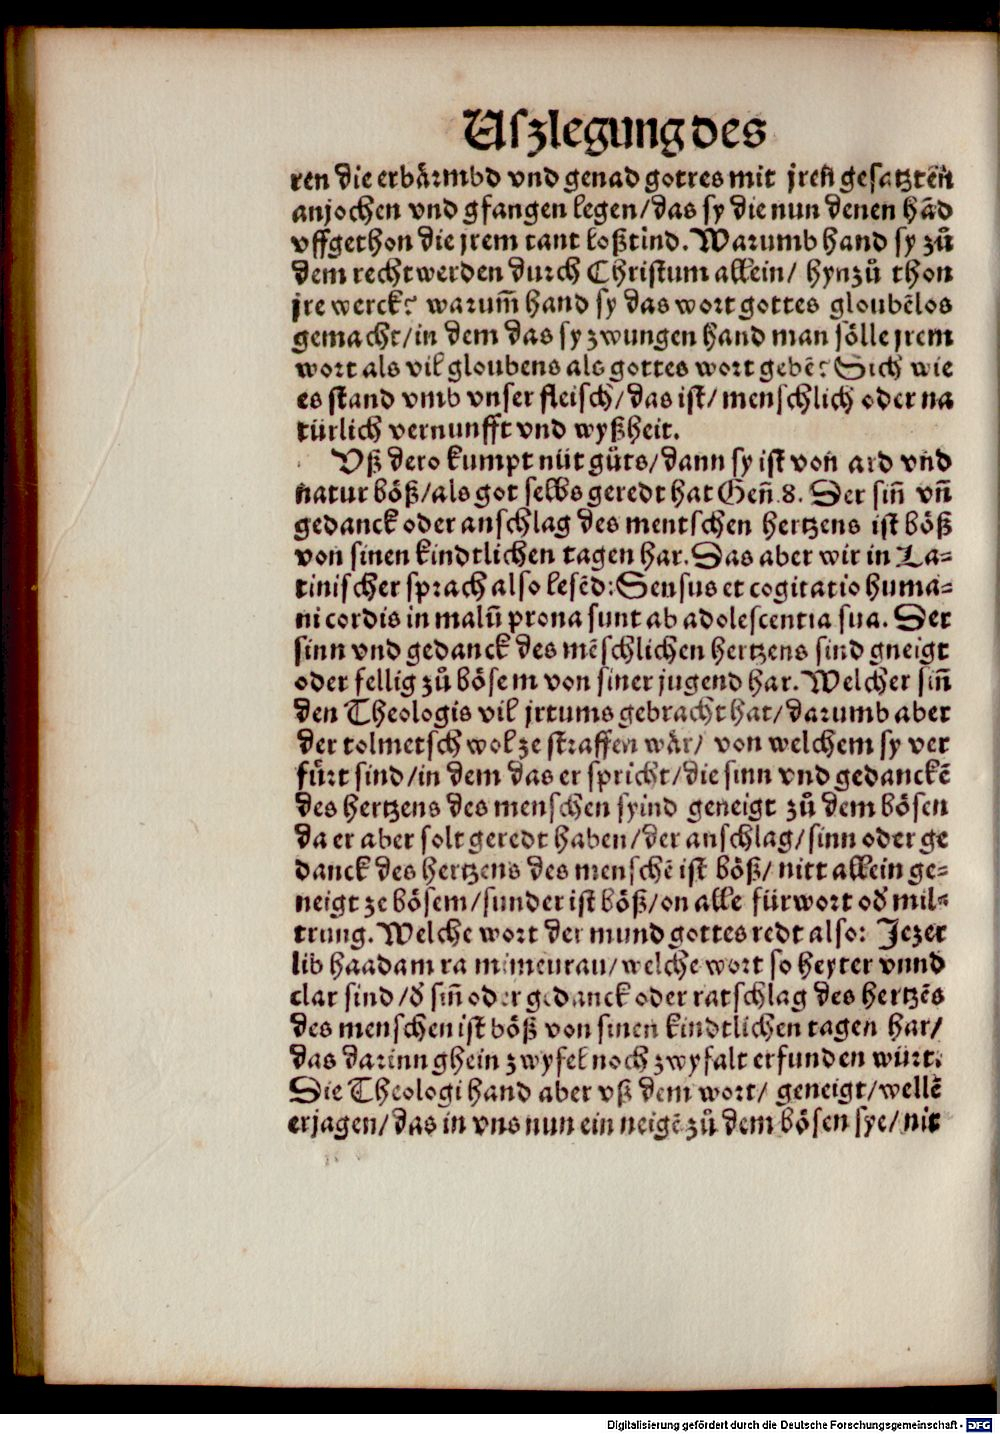 Uſzlegung des
ren die erbaͤrmbd vnd genad gottes mit jren̄ geſatztēn
anjochen vnd gfangen legen/das ſy die nun denen hād
vffgethon die jrem tant loßtind. Warumb hand ſy zů
dem rechtwerden durch Chriſtum allein/ hynzů thon
jre werck? warum̄ hand ſy das wort gottes gloubēlos
gemacht/in dem das ſy zwungen hand man ſoͤlle jrem
wort als vil gloubens als gottes wort gebē? Sich wie
es ſtand vmb vnſer fleiſch/das iſt/menſchlich oder na
türlich vernunfft vnd wyßheit.
Vß dero kumpt nüt gůts/dann ſy iſt von ard vnd
natur boͤß/als got ſelbs geredt hat Gen̄.8. Der ſin̄ vn̄
gedanck oder anſchlag des mentſchen hertzens iſt boͤß
von ſinen kindtlichen tagen har. Das aber wir in La-
tiniſcher ſprach alſo leſēd: Senſus et cogitatio huma-
ni cordis in malū prona ſunt ab adoleſcentia ſua. Der
ſinn vnd gedanck des mēſchlichen hertzens ſind gneigt
oder fellig zů boͤſem von ſiner jugend har. Welcher ſin̄
den Theologis vil jrtums gebracht hat/darumb aber
der tolmetſch wol ze ſtraffen waͤr/ von welchem ſy ver
fuͤrt ſind/in dem das er ſpricht/die ſinn vnd gedanckē
des hertzens des menſchen ſyind geneigt zů dem boͤſen
da er aber ſolt geredt haben/der anſchlag/ſinn oder ge
danck des hertzens des menſchē iſt boͤß/nitt allein ge-
neigt ze boͤſem/ſunder iſt boͤß/on alle fürwort oď mil-
trung. Welche wort der mund gottes redt alſo: Jezer
lib haadam ra mimeurau/welche wort ſo heyter vnnd
clar ſind/ď ſin̄ oder gedanck oder ratſchlag des hertzēs
des menſchen iſt boͤß von ſinen kindtlichen tagen har/
das darinn ghein zwyfel noch zwyfalt erfunden würt.
Die Theologi hand aber vß dem wort/ geneigt/wellē
erjagen/das in vns nun ein neigē zů dem boͤſen ſye/nit
Digitalisierung gefördert durch die Deutsche Forschungsgemeinschaft - DFG